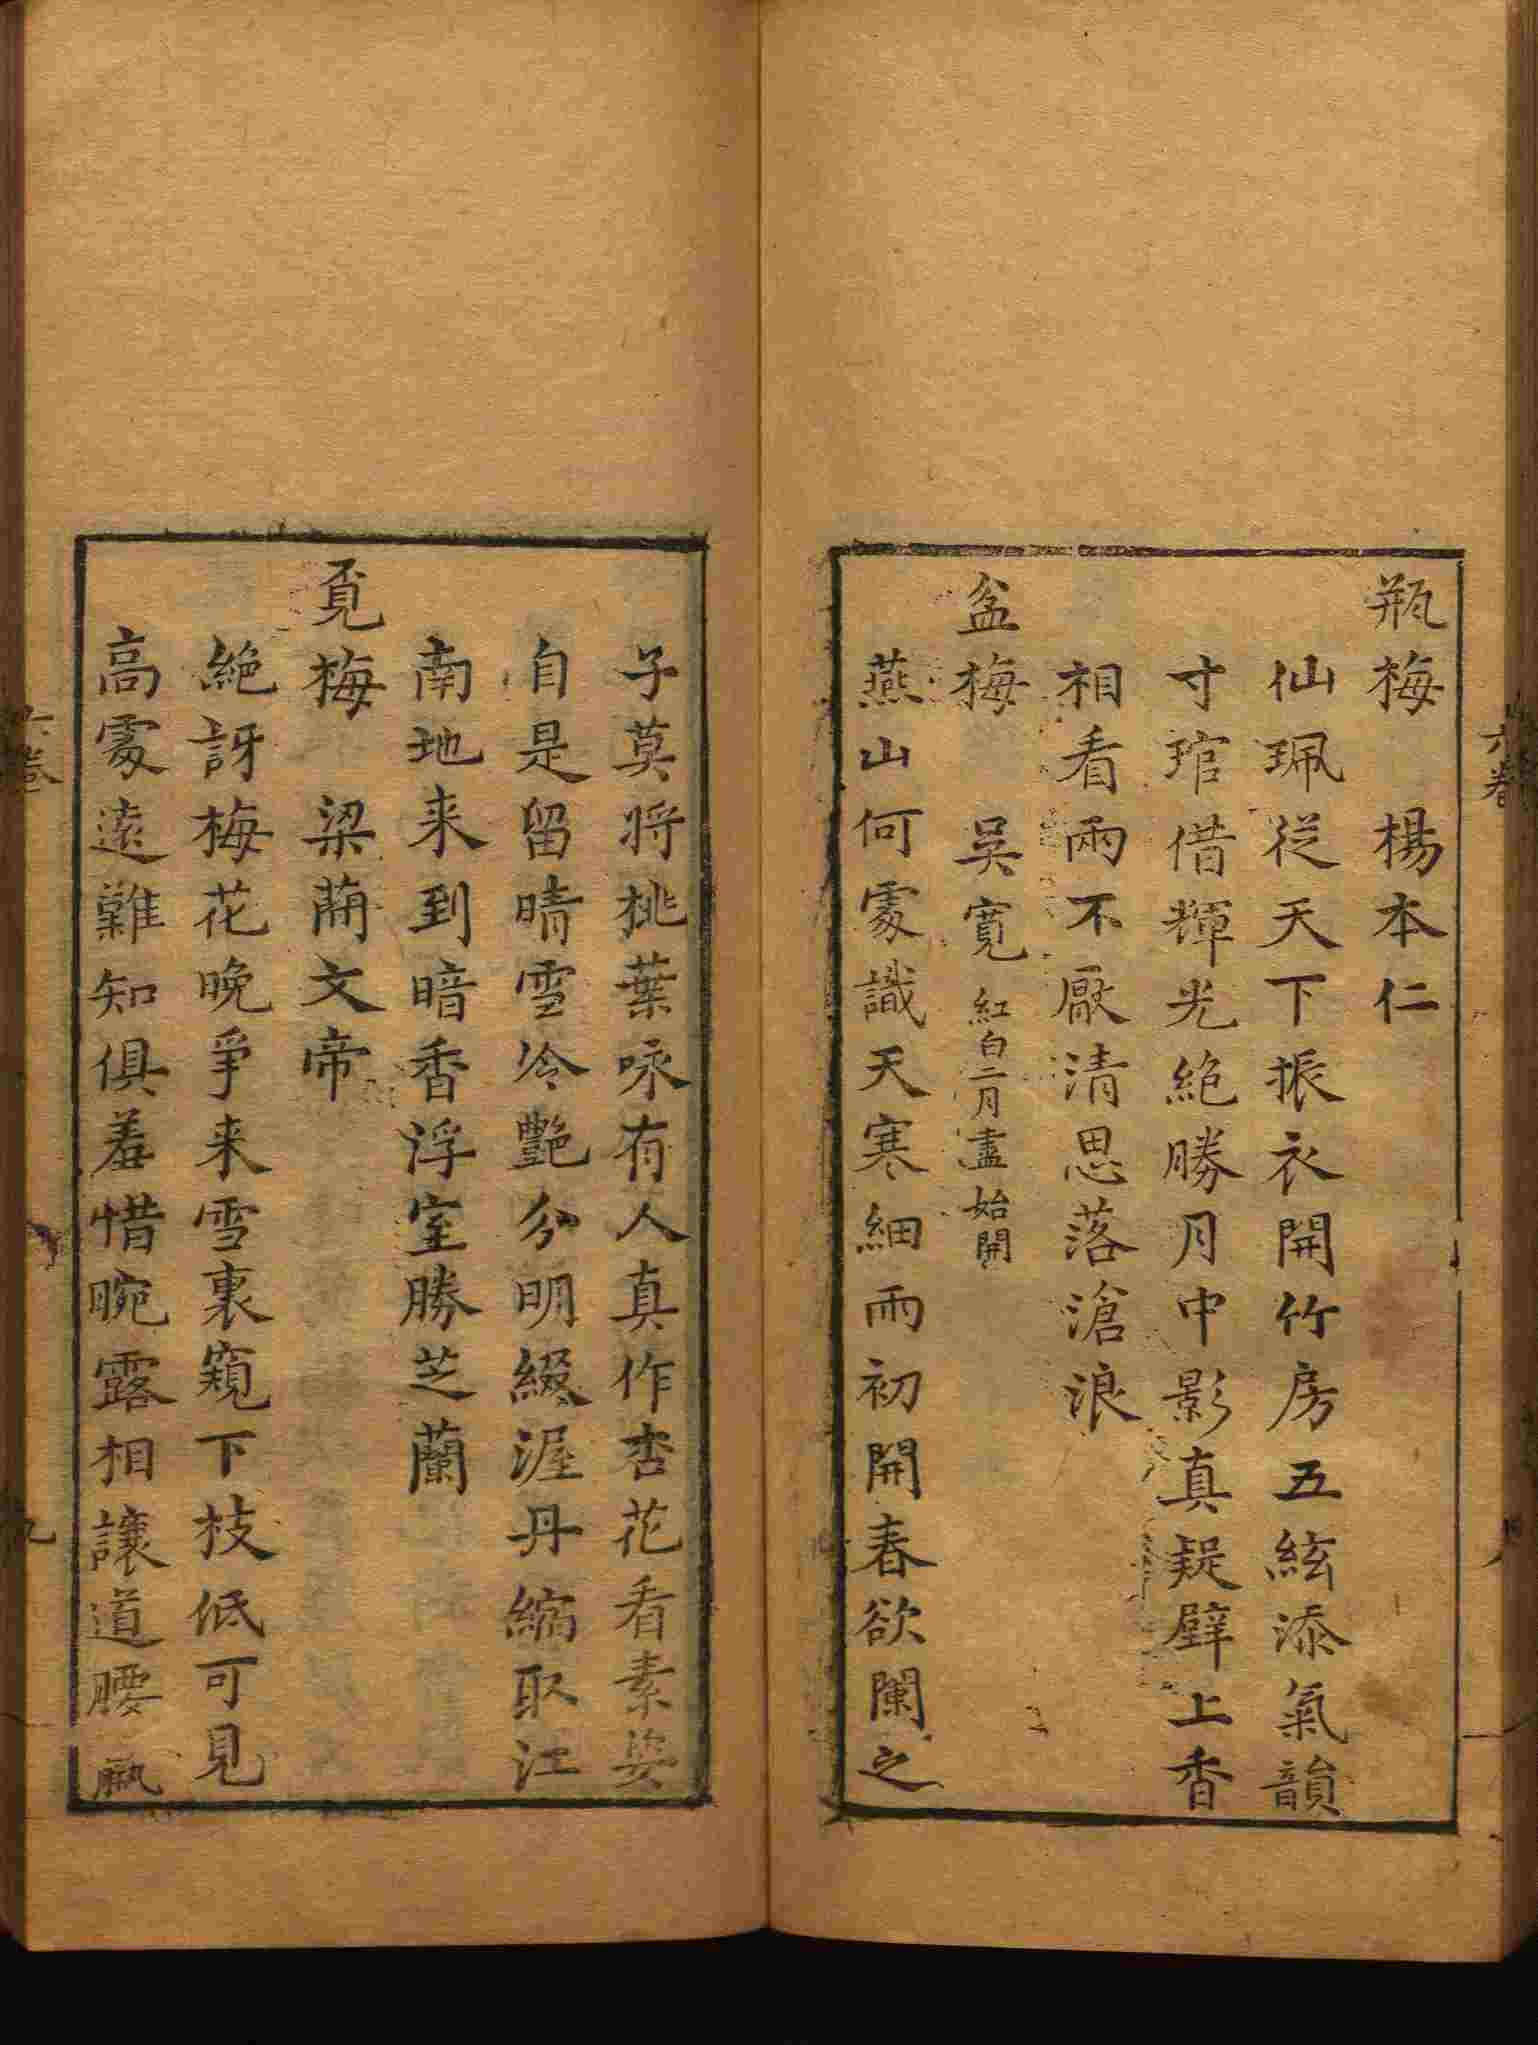 瓶梅　楊本仁
仙珮從天下振衣開竹房五絃添氣韻
寸琯借輝光絶勝月中影真疑壁上香
相看兩不厭清思落滄浪
盆梅　吳寬　紅白二月盡始開
燕山何處識天寒細雨初開春欲闌之
子莫將桃葉咏有人真作杏花看素姿
自是留晴雪冷艷分明綴渥丹縮取江
南地来到暗香浮室勝芝蘭
覔梅　梁蕳文帝
絶訝梅花晚爭来雪裏窺下枝低可見
高處遠難知俱羞惜腕露相讓道腰羸
六卷
六卷
九